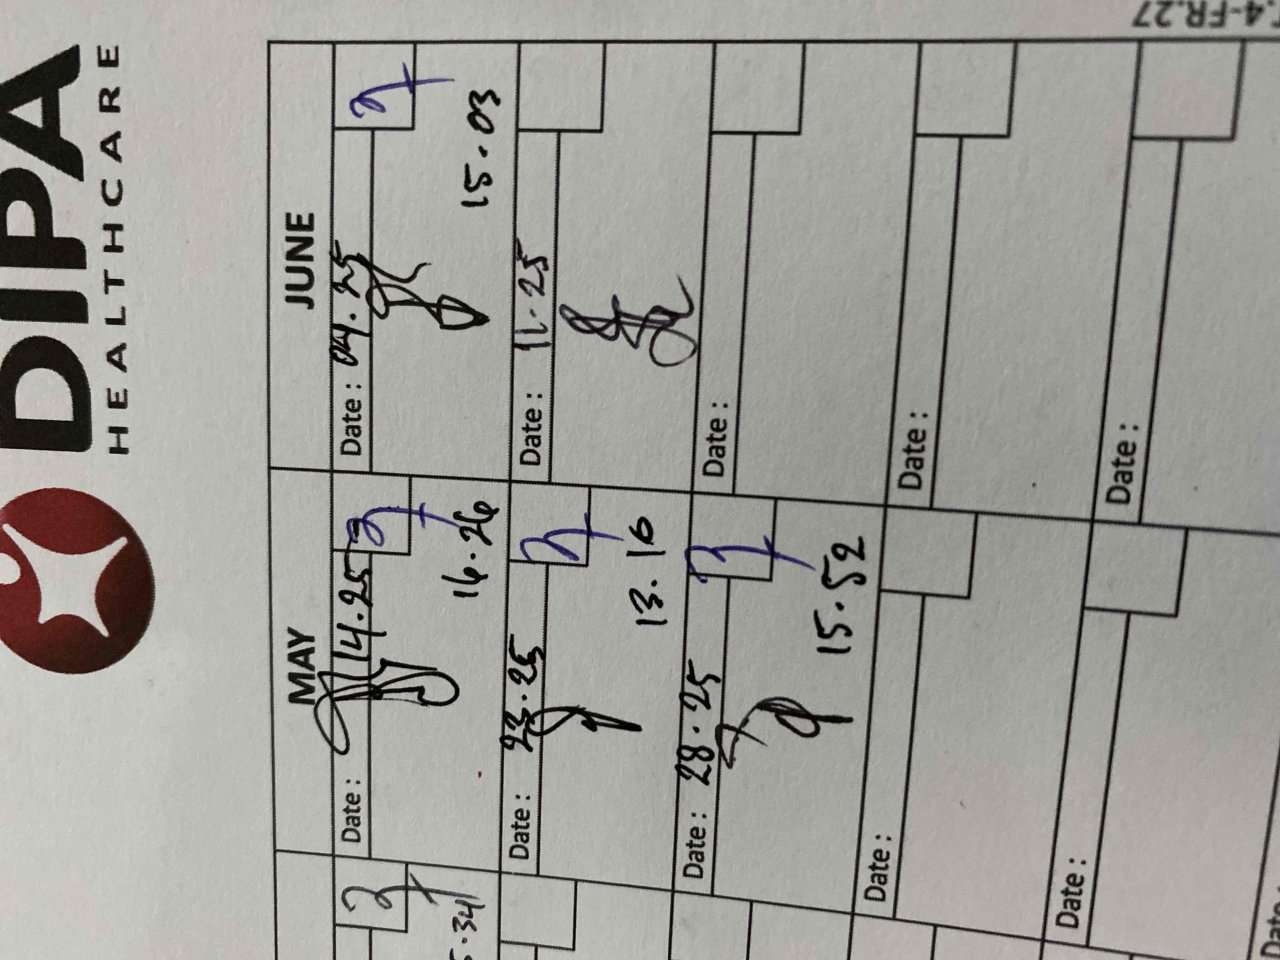 DIPA
HEALTHCARE
.4-FR.27
MAY
JUNE
Date : 14.25
16.26
Date : 04.25
15.03
5.34
Date : 23.25
13.16
Date : 11.25
Date : 28.25
15.52
Date :
Date :
Date :
Date :
Date :
Date